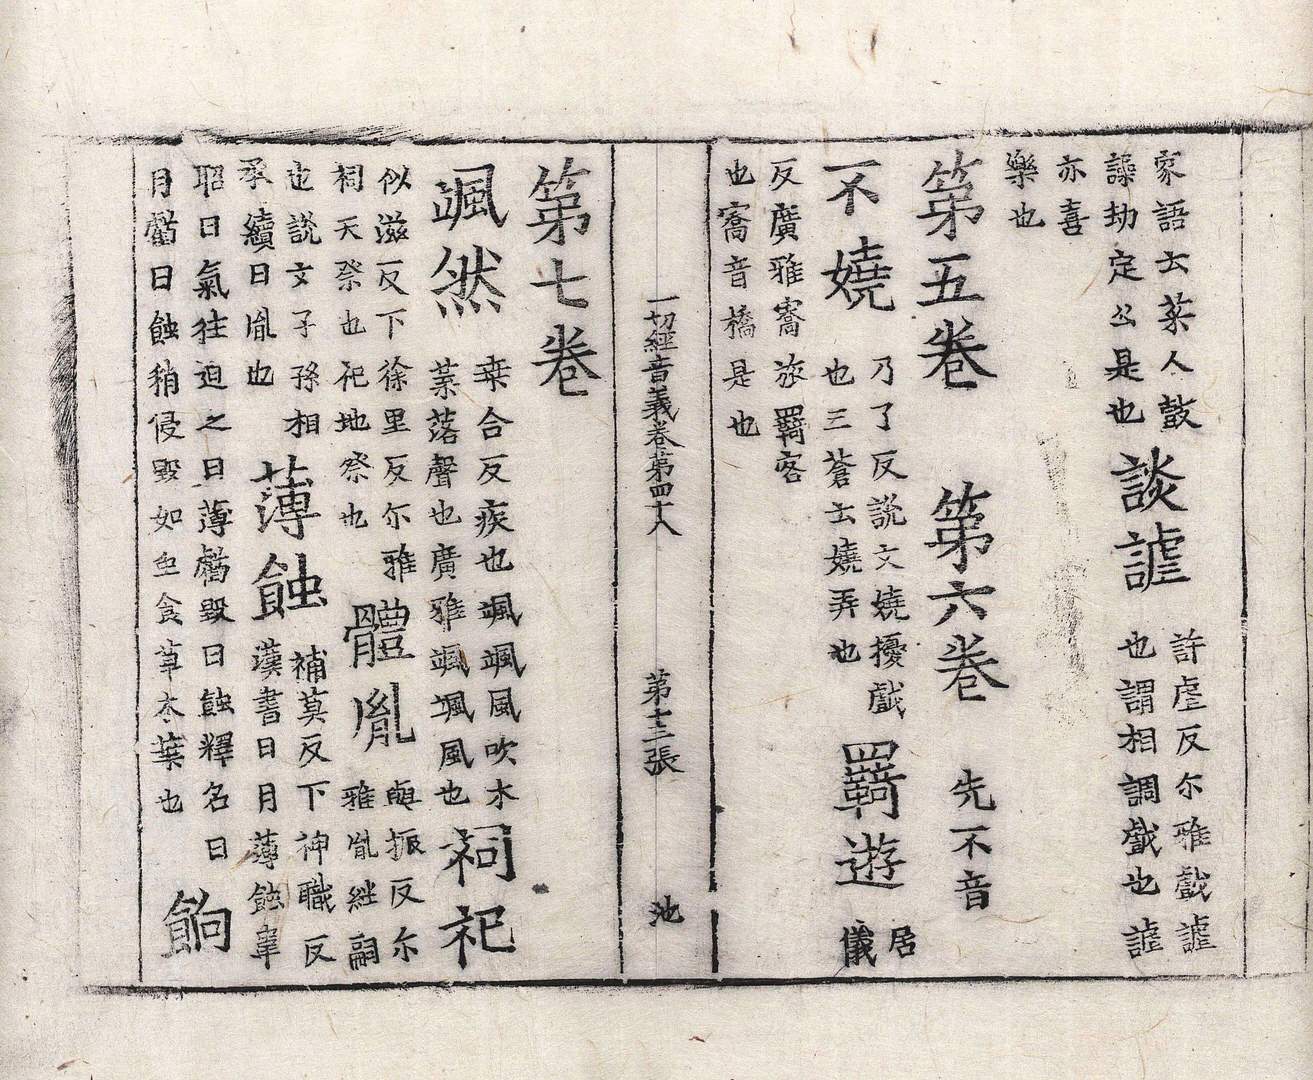 家語云萊人鼓
譟劫定公是也
談謔
許虐反尔雅戲謔
也謂相調戲也謔
亦喜
樂也
第五卷 第六卷 先不音
不嬈
乃了反說文嬈擾戲
也三蒼云嬈弄也
羇遊
居
儀
反廣雅㝯旅羇客
也㝯音橋是也
一切經音義卷第四十八 第十三張 池
第七卷
颯然
桒合反疾也颯颯風吹木
葉落聲也廣雅颯颯風也
祠祀
似滋反下徐里反尔雅
祠天祭也祀地祭也
體胤
與振反尔
雅胤繼嗣
也說文子孫相
承續曰胤也
薄蝕
補莫反下神職反
漢書日月薄蝕韋
昭曰氣往迫之曰薄虧毀曰蝕釋名曰
月虧曰蝕稍侵毀如虫食草木葉也
餉